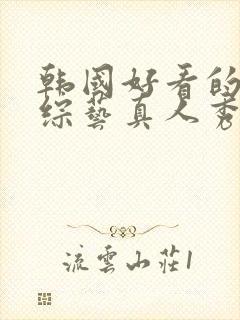 韩國好看的
综藝真人秀
流雲山莊1